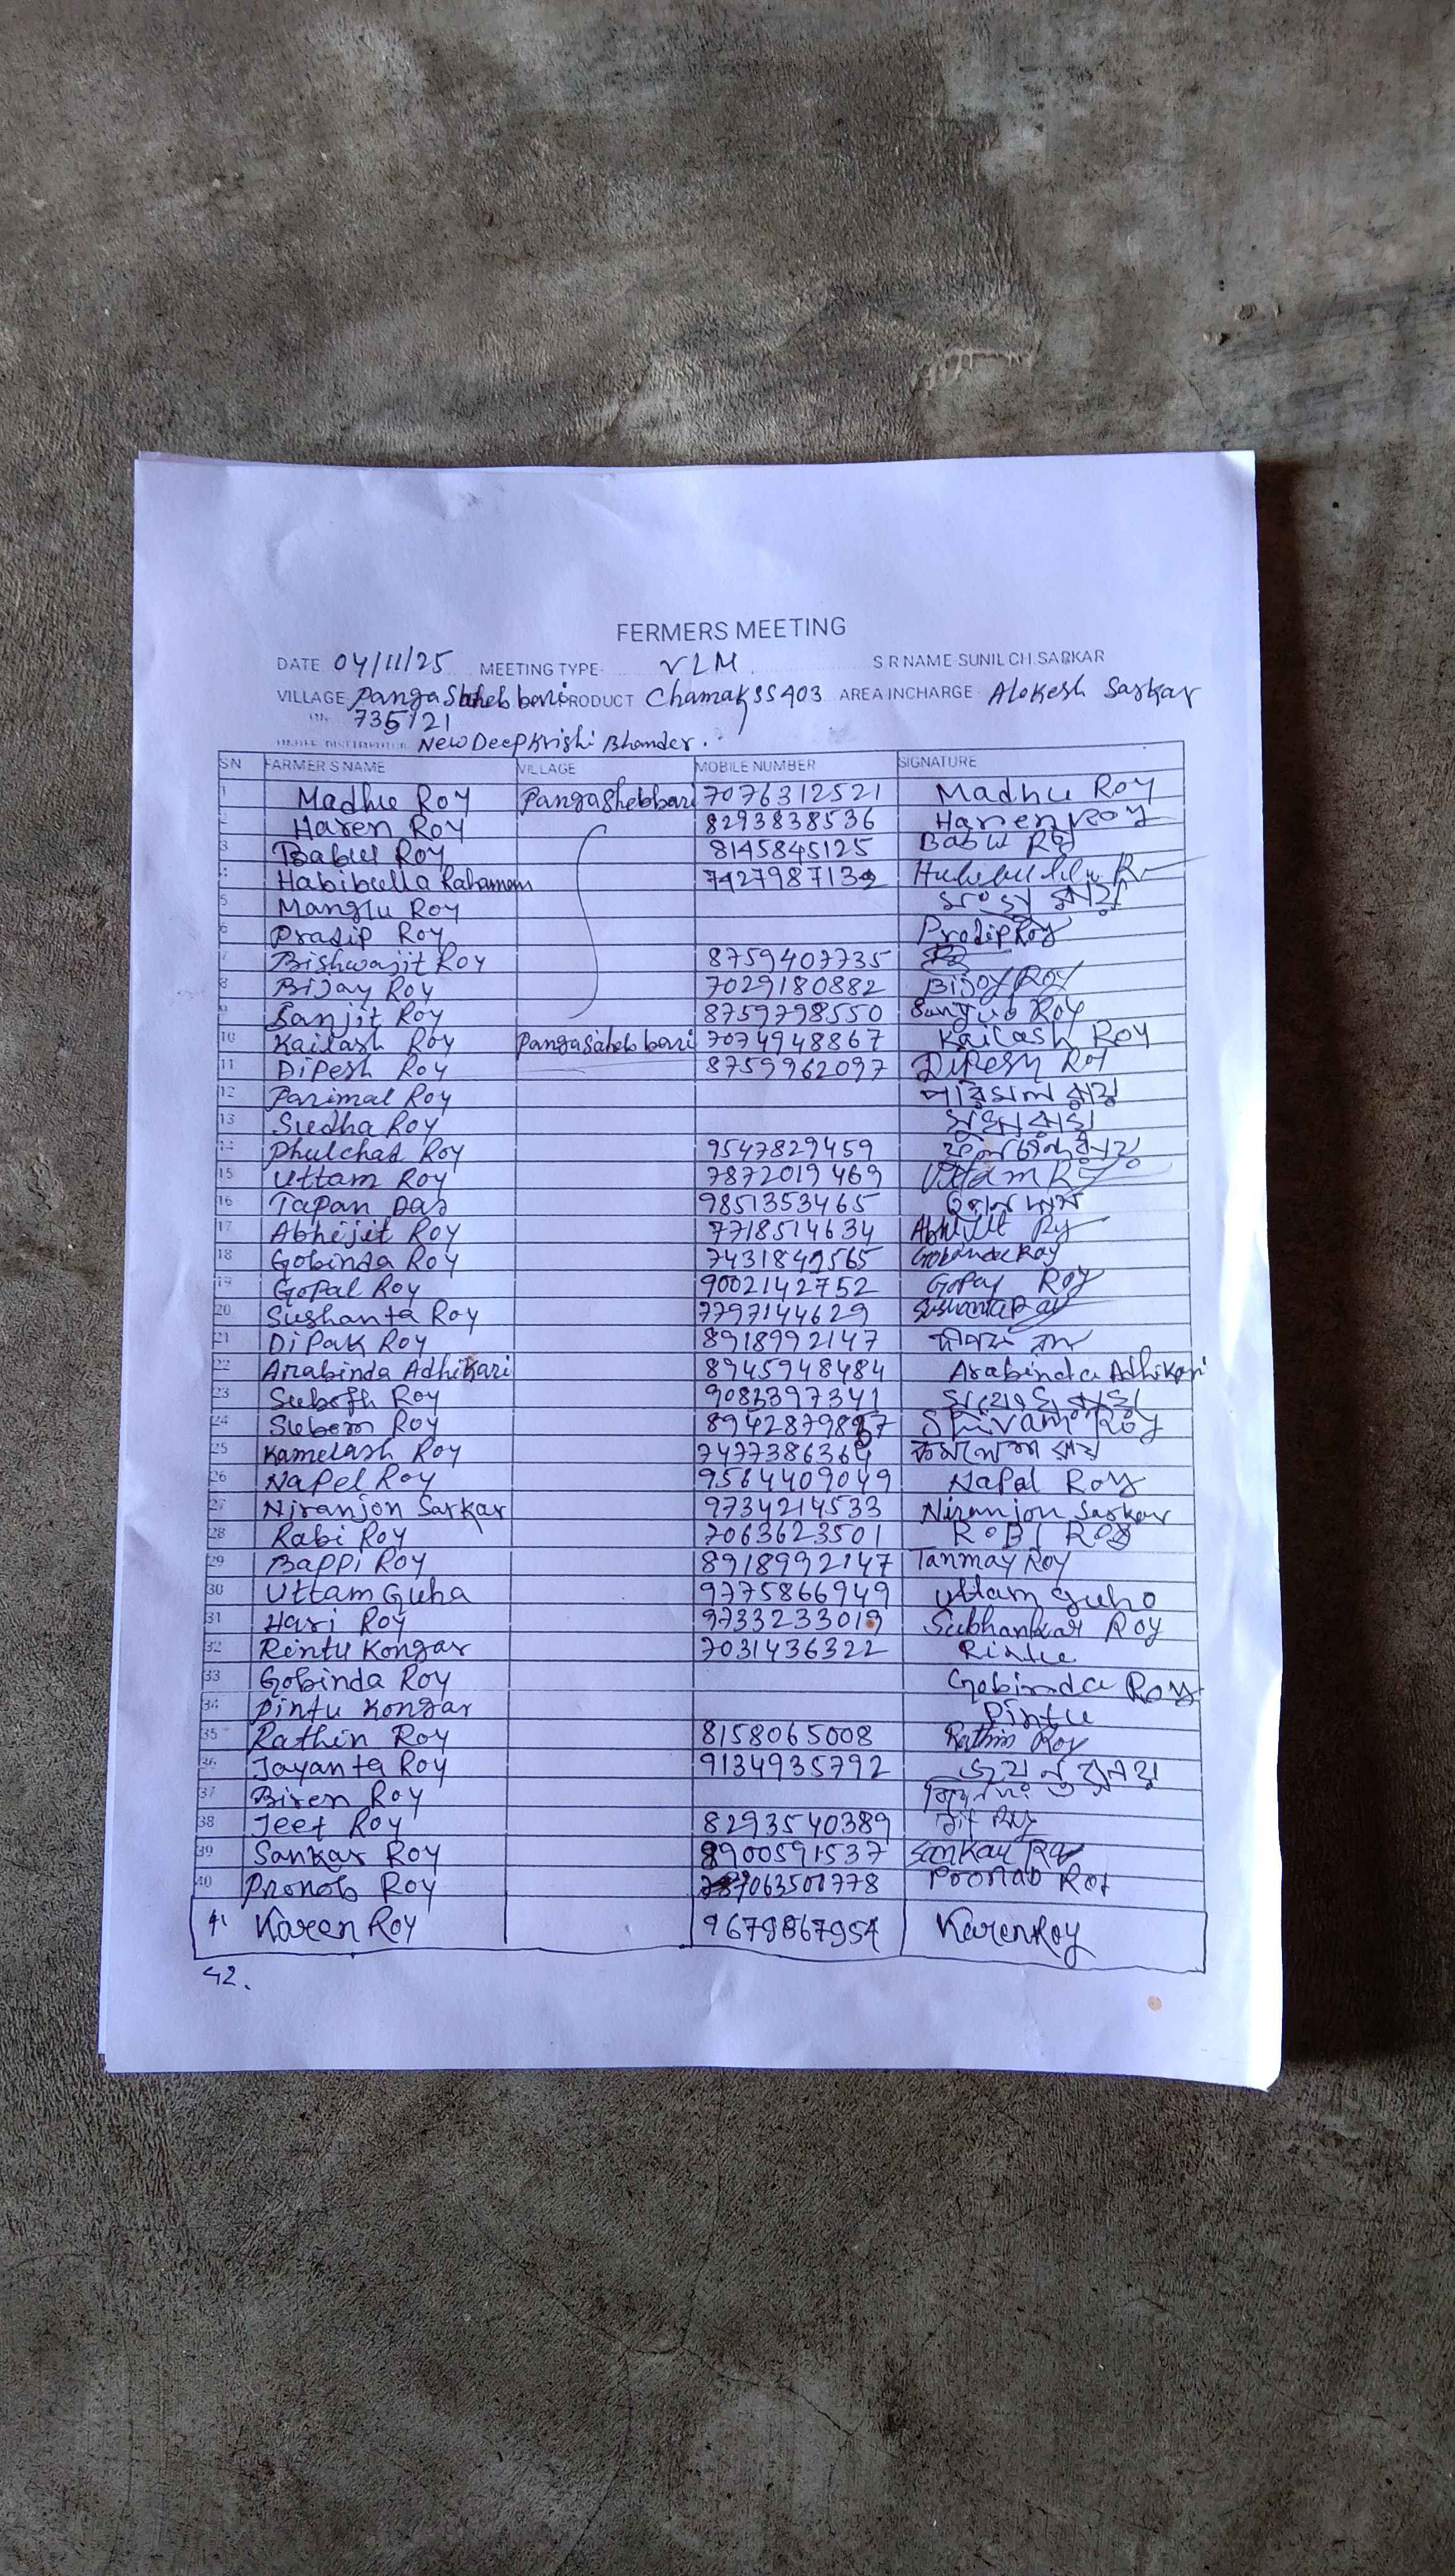 FERMERS MEETING
DATE 04/11/25 MEETING TYPE- VLM S R NAME-SUNIL CH.SARKAR
VILLAGE- Panga Saheb bari PRODUCT Chamak SS 403 AREA INCHARGE- Alokesh Sarkar
735121
New Deep Krishi Bhander.
SN FARMER S NAME VILLAGE MOBILE NUMBER SIGNATURE
1 Madhu Roy Panga Shebbari 7076312521 Madhu Roy
2 Haren Roy 8293838536 Haren Roy
3 Babul Roy 8145845125 Babul Roy
4 Habibulla Rahaman
5 Manglu Roy
6 Pradip Roy Prodip Roy
7 Bishwajit Roy 8759407735
8 Bijay Roy 7029180882 Bijoy Roy
9 Sanjit Roy 8759798550
10 Kailash Roy Panga Saheb bari 7074948867 Kailash Roy
11 Dipesh Roy 8759962097 Dipesh Roy
12 Parimal Roy
13 Sudha Roy
14 Phulchad Roy 9547829459
15 Uttam Roy 7872019469 Uttam
16 Tapan Das 9851353465
17 Abhijit Roy 7718514634
18 Gobinda Roy Gobinda Roy
19 Gopal Roy 9002142752 Gopal Roy
20 Sushanta Roy 7797144629 Sushanta Roy
21 Dipak Roy 8918992147
22 Arabinda Adhikari 8945948484 Arabinda Adhikari
23 Subodh Roy
24 Subom Roy Shivam Roy
25 Kamelash Roy কমলেশ রায়
26 Napel Roy 9564409049 Napal Roy
27 Niranjon Sarkar 9734214533 Niranjon Sarkar
28 Rabi Roy 7063623501 ROBI ROY
29 Bappi Roy 8918992147 Tanmay Roy
30 Uttam Guha 9775866949 Uttam guho
31 Hari Roy 9733233019 Subhankar Roy
32 Rintu Kongar 7031436322 Rintu
33 Gobinda Roy Gobinda Roy
34 Pintu Kongar Pintu
35 Rathin Roy 8158065008 Rathin Roy
36 Jayanta Roy 9134935792
37 Biren Roy
38 Jeet Roy 8293540389
39 Sankar Roy 8900591537 Sankar Roy
40 Pronob Roy
41 Karen Roy 9679867954 Karen Roy
42.